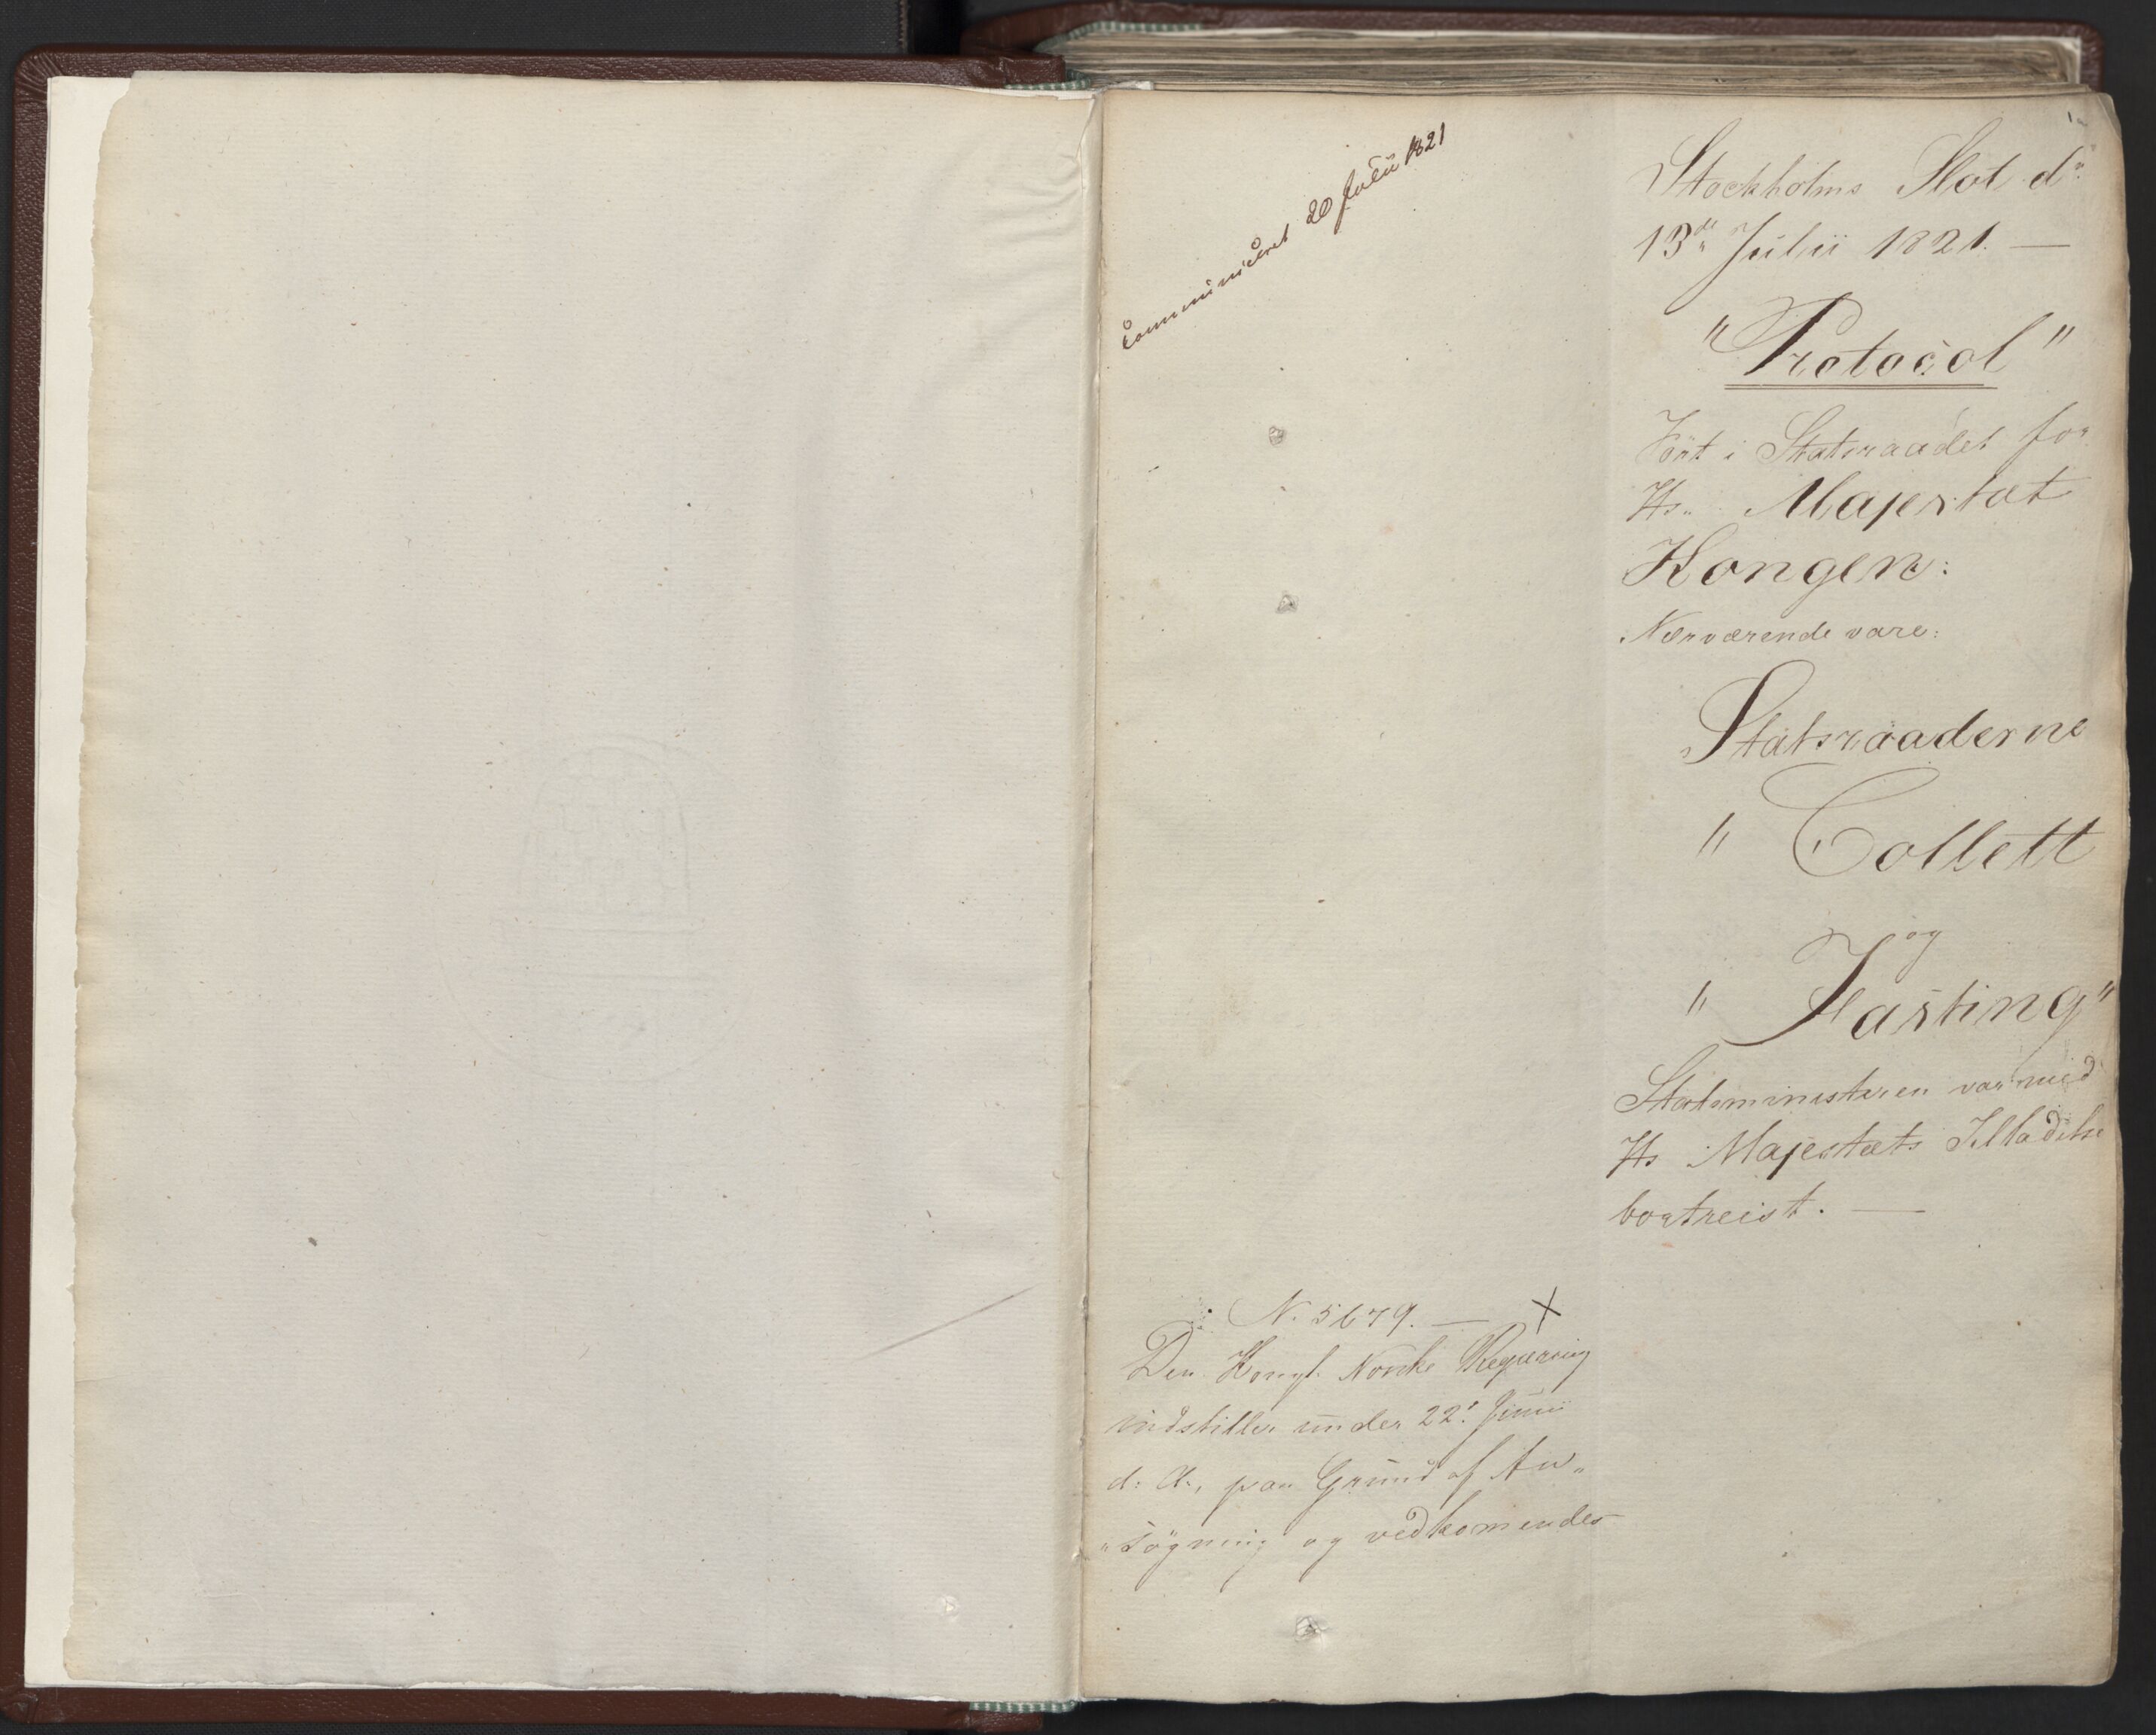 1
Communiceret 20 Julii 1821
Stockholms Slot dn
13de Julii 1821. —
"Protocol"
Ført i Statsraadet for
Hs. Majestæt
Kongen:
Nærværende vare:
Statsraaderne
" Collett
og
" Fasting"
Statsministeren var med
Hs Majestæts Tilladelse
bortreist. —
N. 5679. — X
Den Kongl. Norske Regjering
indstiller under 22. Junii
d: A:, paa Grund af An„
„søgning og vedkommendes